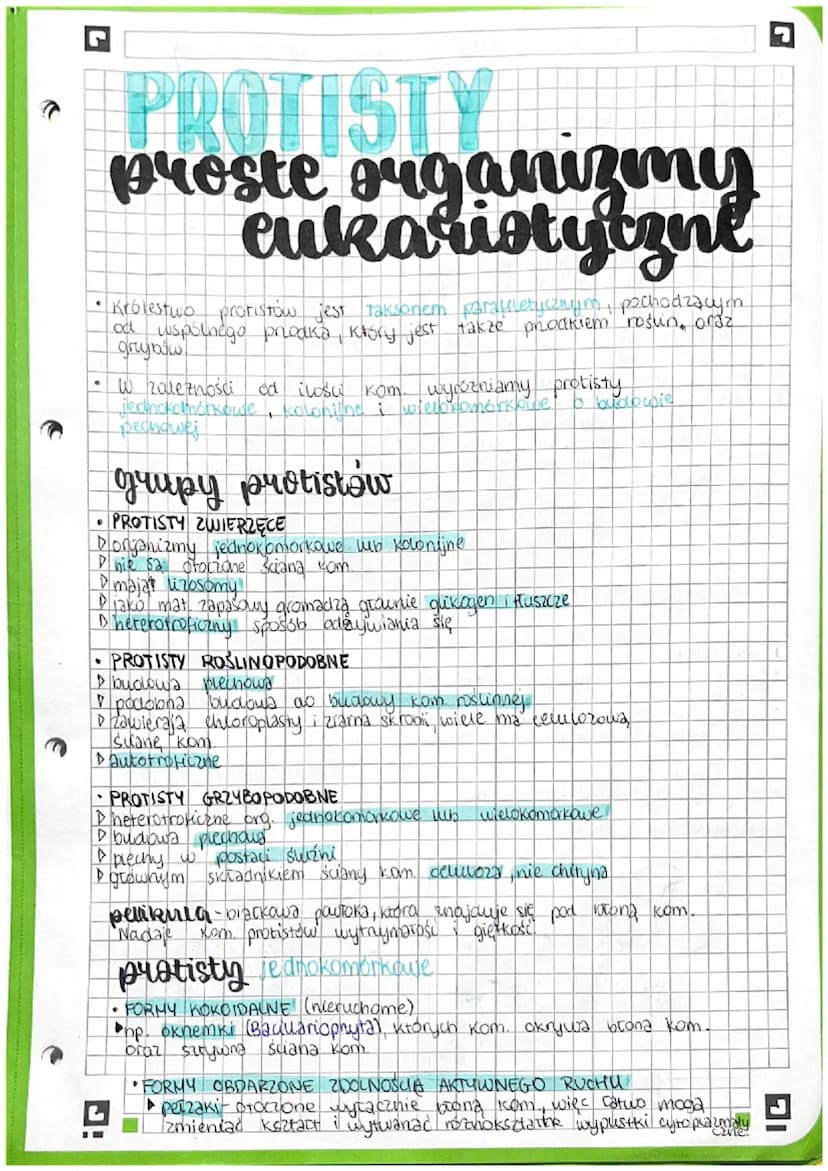 PROTISTY
proste organizmy
eukariotyczne
• Królestwo protistów jest taksonem parafiletycznym, pochodzącym
od wspólnego przodka, który jest także przodkiem roślin, oraz
grzybów.
• W zależności od ilości kom. wyróżniamy protisty
jednokomórkowe, kolonijne i wielokomórkowe o budowie
plechowej
grupy protistów
• PROTISTY ZWIERZĘCE
▷ organizmy jednokomórkowe lub kolonijne
▷ nie są otoczone ścianą kom.
▷ mają lizosomy
▷ jako mat. zapasowy gromadzą głównie glikogen i tłuszcze
▷ heterotroficzny sposób odżywiania się
• PROTISTY ROŚLINOPODOBNE
▷ budowa plechowa
▷ podobna budowa do budowy kom. roślinnej
▷ zawierają chloroplasty i ziarna skrobi, wiele ma celulozową
ścianę kom.
▷ autotroficzne
• PROTISTY GRZYBOPODOBNE
▷ heterotroficzne org. jednokomórkowe lub wielokomórkowe
▷ budowa plechowa
▷ plechy w postaci śluźni
▷ głównym składnikiem ściany kom. celuloza, nie chityna
pellikula - białkowa powłoka, która znajduje się pod błoną kom.
Nadaje kom. protistów wytrzymałość i giętkość.
protisty jednokomórkowe
• FORMY KOKOIDALNE (nieruchome)
▶ np. okrzemki (Bacillariophyta), których kom. okrywa błona kom.
oraz sztywna ściana kom.
• FORMY OBDARZONE ZDOLNOŚCIĄ AKTYWNEGO RUCHU
▶ pełzaki - otoczone wyłącznie błoną kom., więc łatwo mogą
zmieniać kształt i wytwarzać różnokształtne wypustki cytoplazmaty
czne.